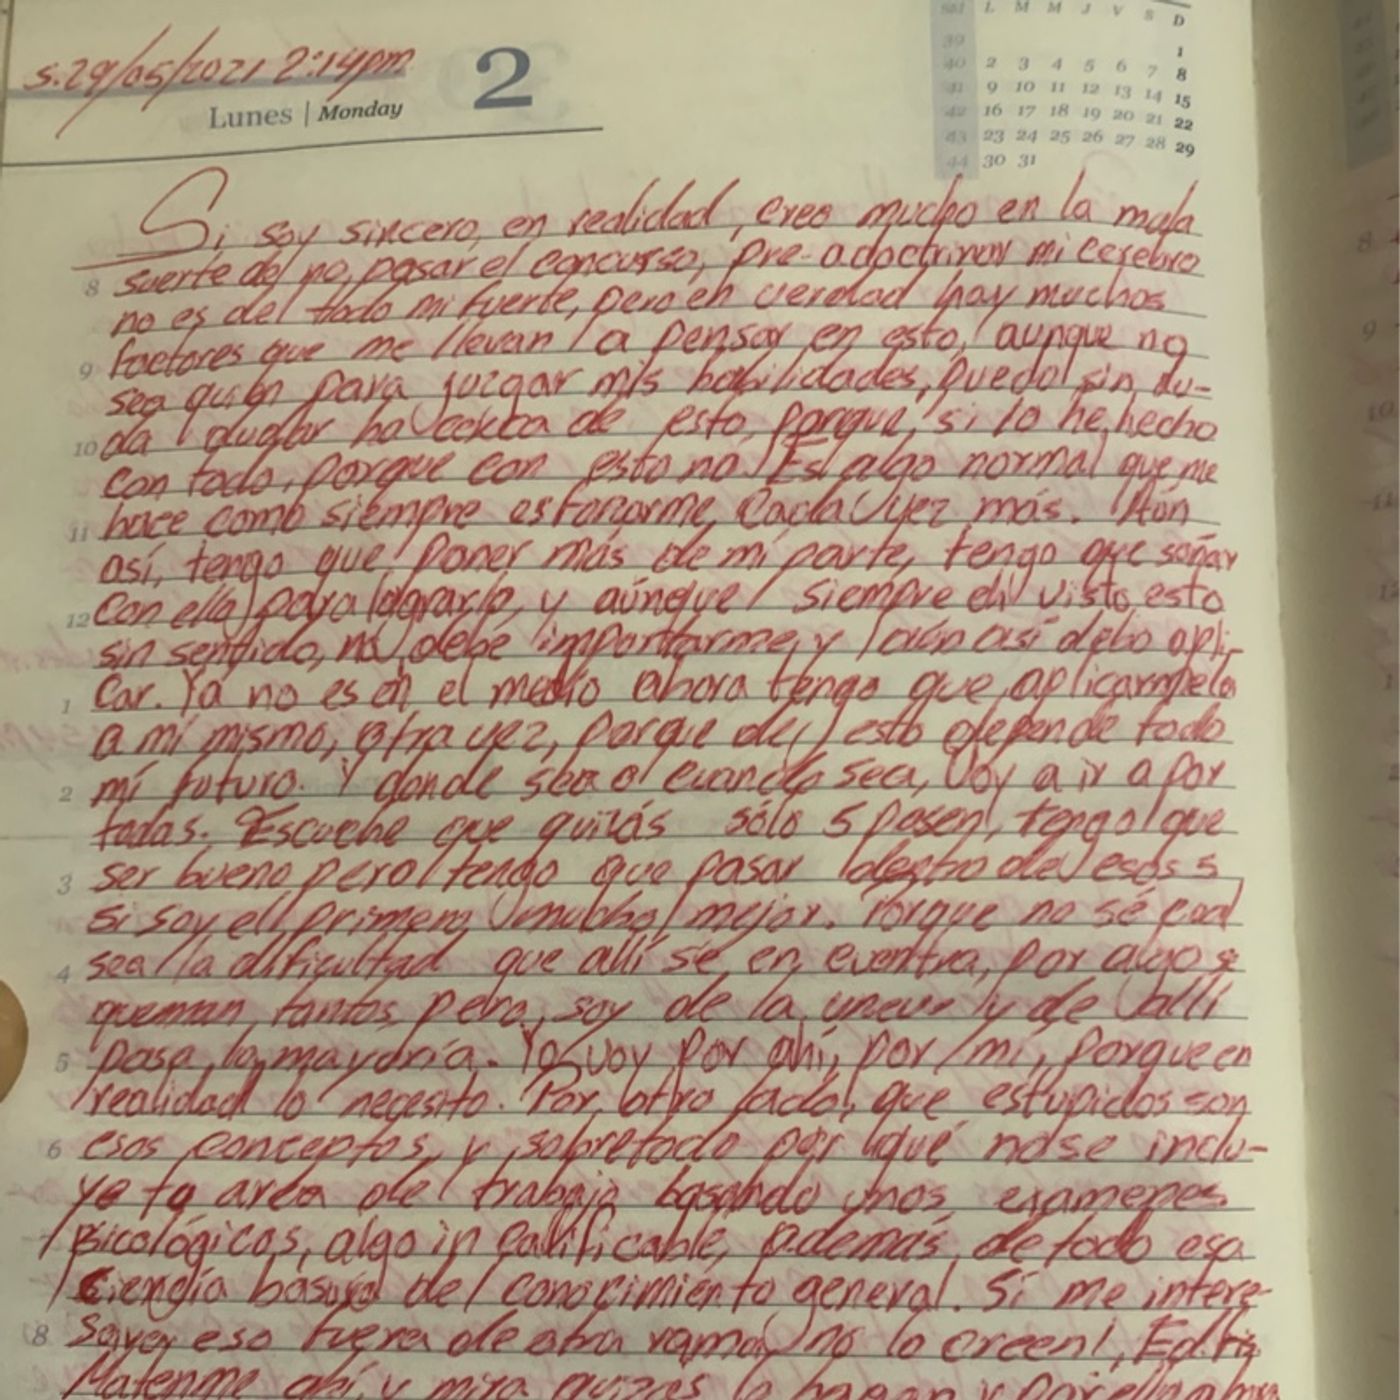 SM L M M J V S D
39 1
40 2 3 4 5 6 7 8
41 9 10 11 12 13 14 15
42 16 17 18 19 20 21 22
43 23 24 25 26 27 28 29
44 30 31
s.29/05/2021 2:14pm
2
Lunes | Monday
Si soy sincero, en realidad, creo mucho en la mala
8 suerte del no pasar el concurso, pre-adoctrinar mi cerebro
no es del todo mi fuerte, pero en verdad hay muchos
9 factores que me llevan a pensar en esto, aunque no
sea quien para juzgar mis habilidades, puedo sin du-
10 da dudar de esto, porque, si lo he hecho
con todo, porque con esto no. Es algo normal que me
11 hace como siempre esforzarme, cada vez más. Aún
así, tengo que poner más de mi parte, tengo que soñar
12 con ello para lograrlo, y aúnque siempre di visto esto
sin sentido, no debe importarme, y aún así debo apli-
1 car. Ya no es en el medio ahora tengo que aplicarmelo
a mí mismo, otra vez, porque de esto depende todo
2 mi futuro. Y donde sea o cuando sea, Voy a ir a por
todas. Escuche que quizás sólo 5 pasen, tengo que
3 ser bueno pero tengo que pasar dentro de esos 5
si soy el primero, mucho mejor. Porque no sé cual
4 sea la dificultad que allí se en, por algo se
queman tantos, pero, soy de la y de allí
5 pasa la mayoría. Yo voy por ahí, por mi, porque en
realidad lo necesito. Por otro lado, que estupidos son
6 esos conceptos, y sobretodo por qué no se inclu-
ye tu area de trabajo basando unos examenes
psicológicos, algo in calificable, además, de todo esa
ciencia basura del conocimiento general. Si me intere-
8 sara eso fuera de otra rama, no lo creen!,
Matenme ahí, y mira quizas lo hagan y por ello